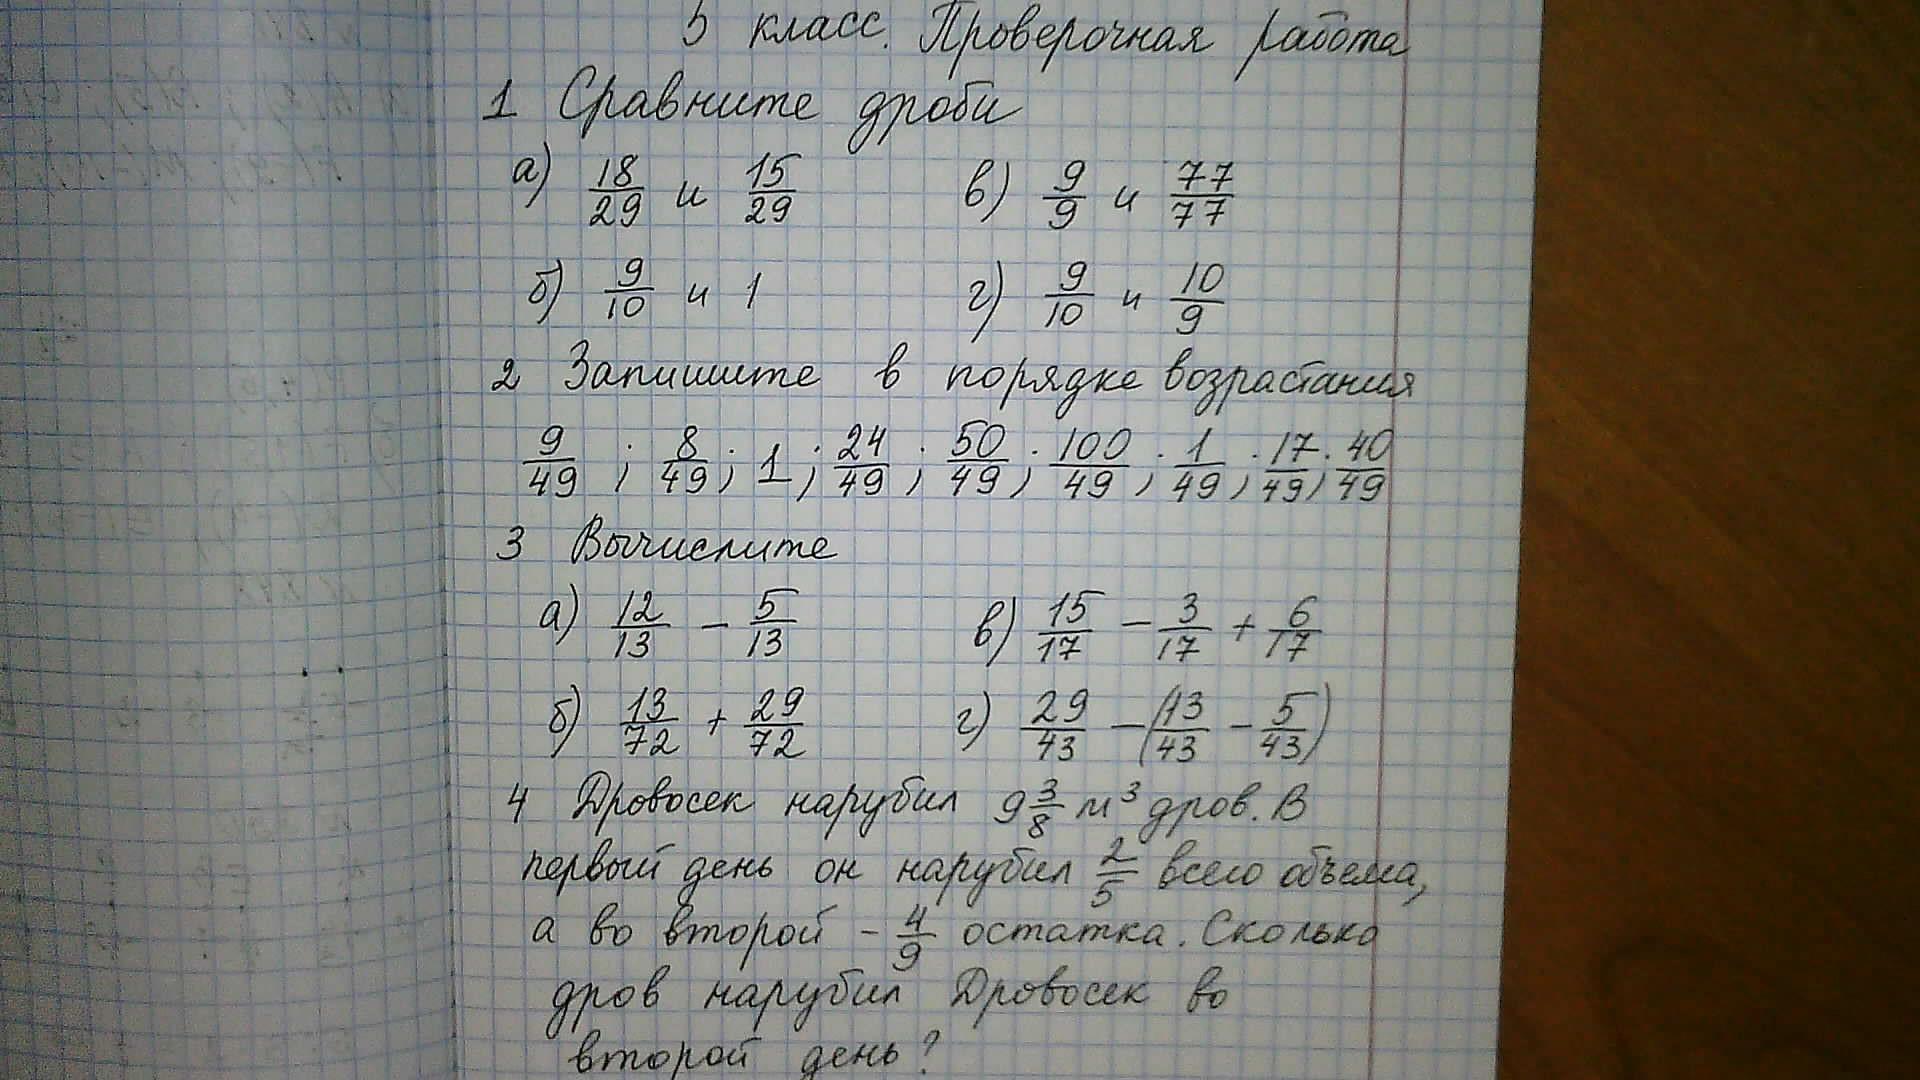 5 класс. Проверочная работа
1 Сравните дроби
а) 18/29 и 15/29 в) 9/9 и 77/77
б) 9/10 и 1 г) 9/10 и 10/9
2 Запишите в порядке возрастания
9/49 ; 8/49 ; 1 ; 24/49 ; 50/49 ; 100/49 ; 1/49 ; 17/49 ; 40/49
3 Вычислите
а) 12/13 - 5/13 в) 15/17 - 3/17 + 6/17
б) 13/72 + 29/72 г) 29/43 - (13/43 - 5/43)
4 Дровосек нарубил 9 3/8 м³ дров. В
первый день он нарубил 2/5 всего объема,
а во второй - 4/9 остатка. Сколько
дров нарубил Дровосек во
второй день?